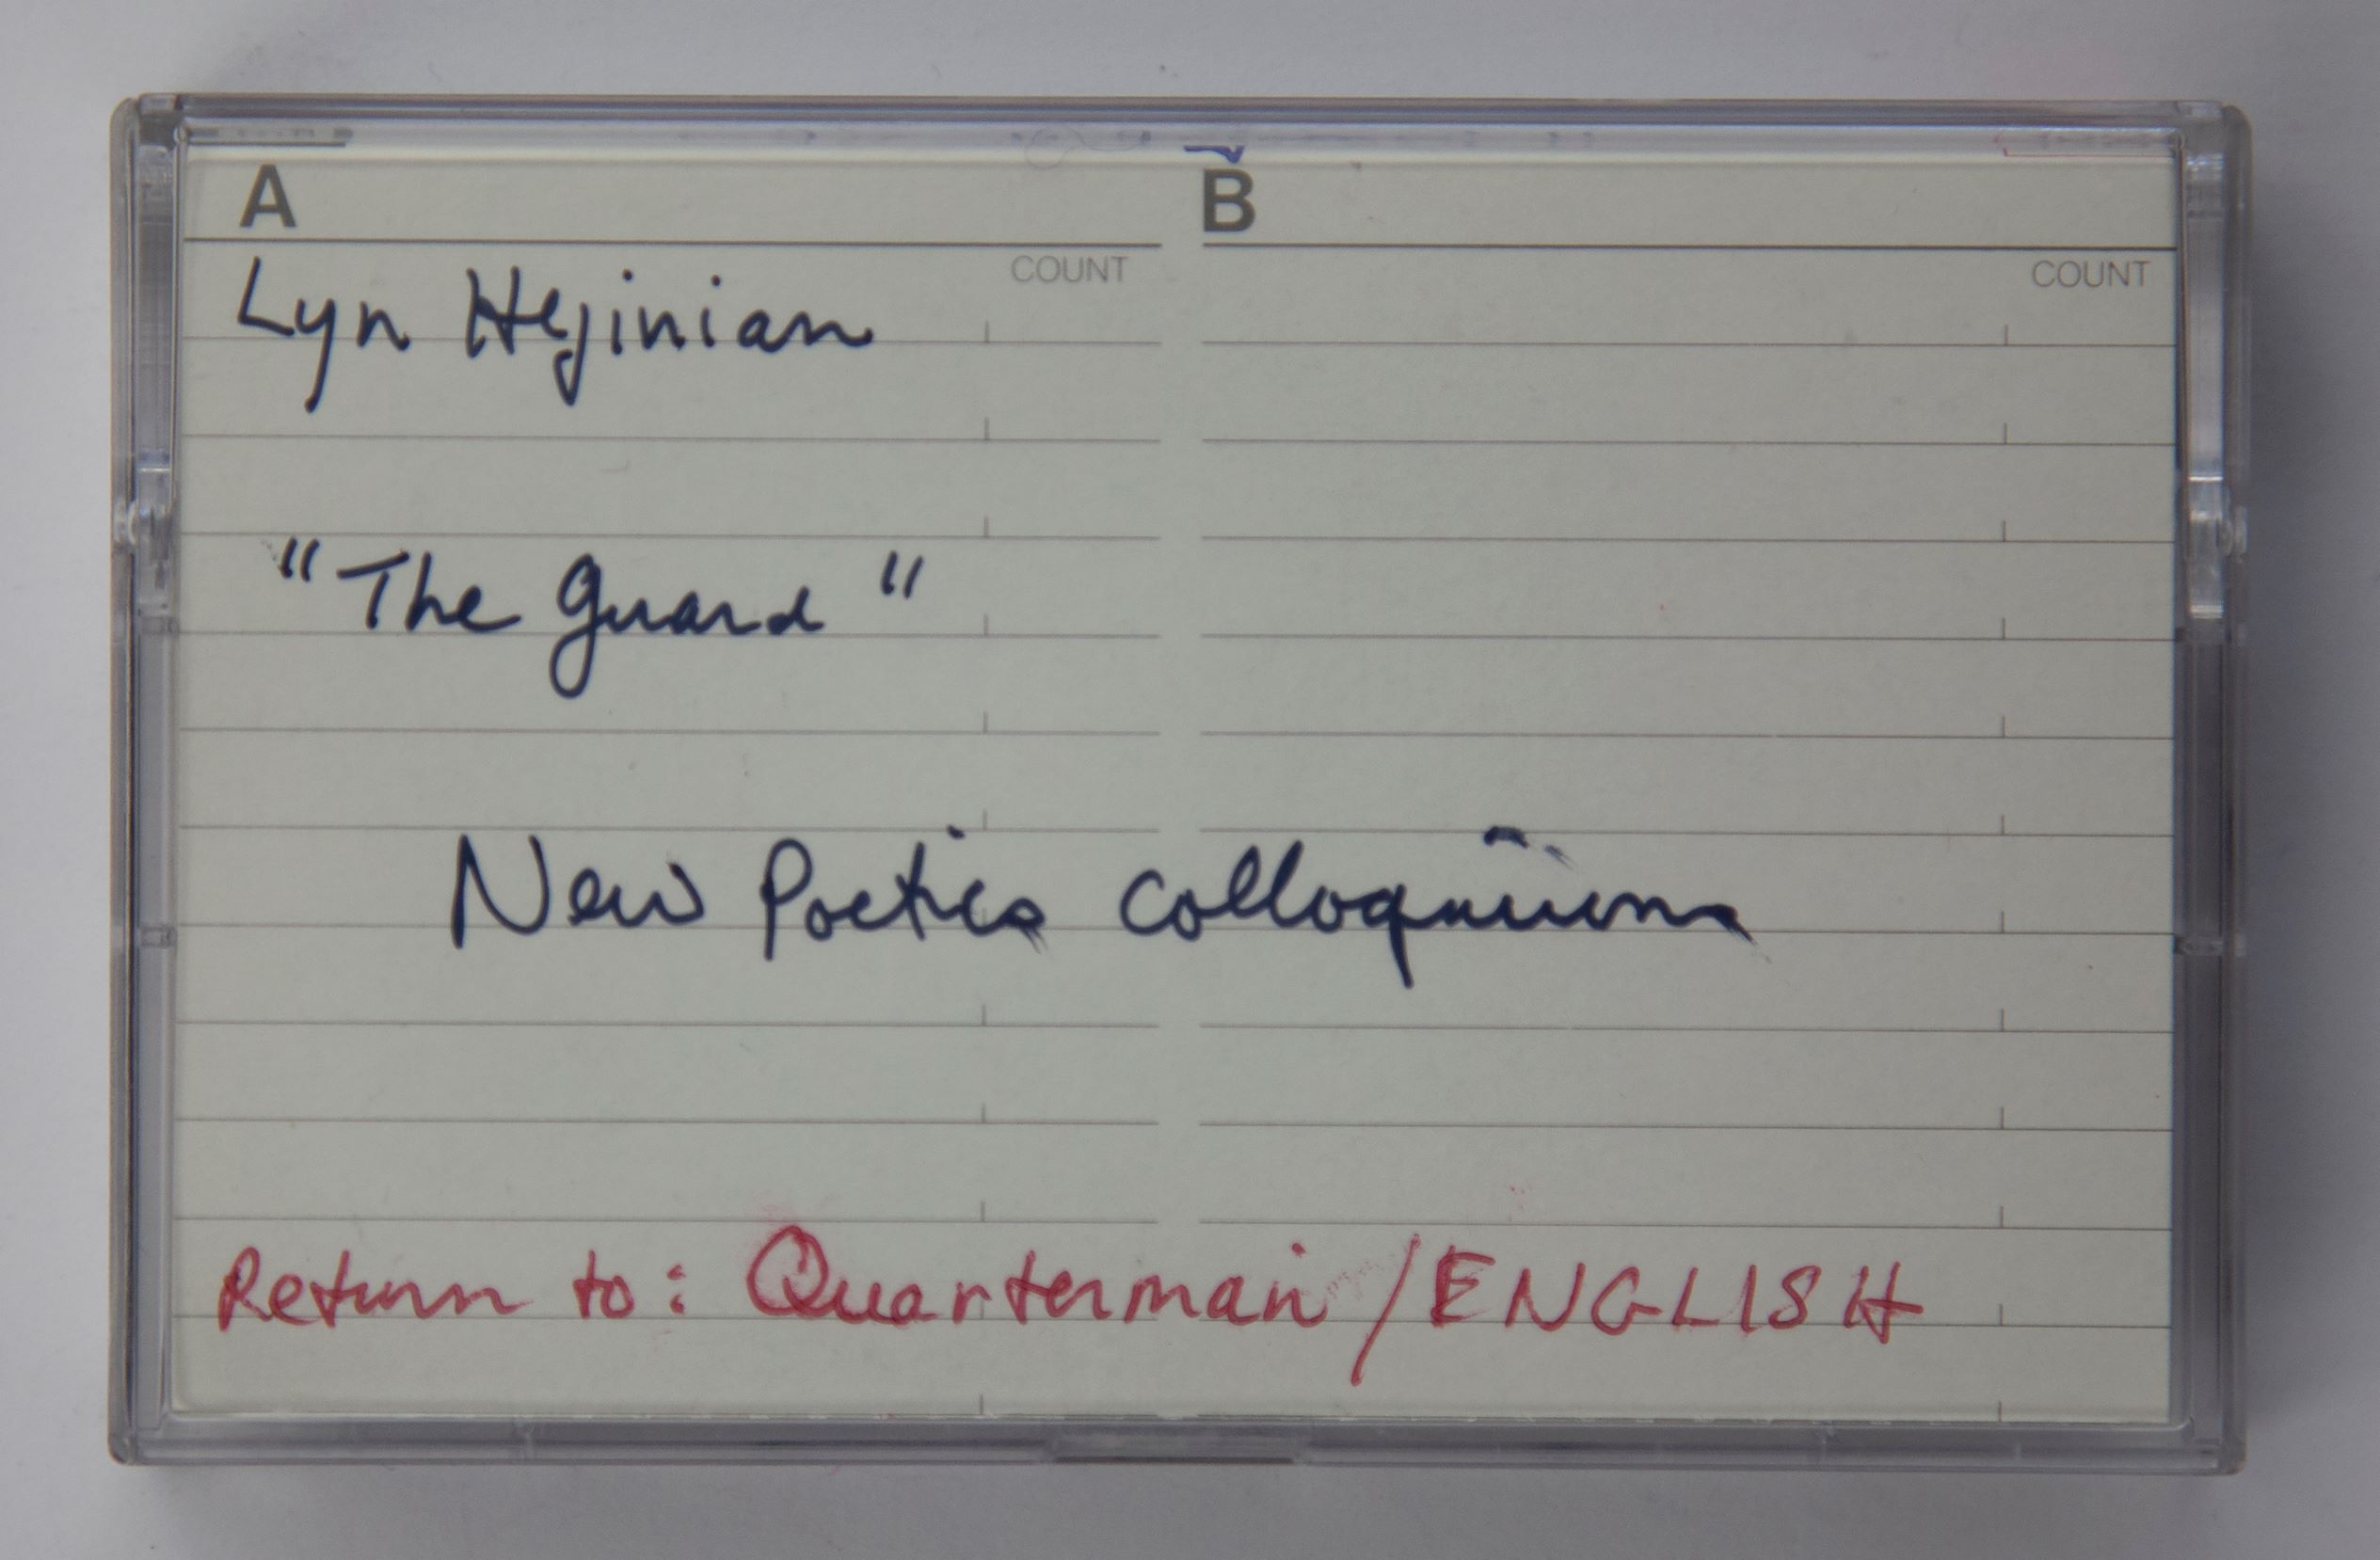 A B
COUNT COUNT
Lyn Hejinian
"The Guard"
New Poetics Colloquium
Return to: Quarterman/ENGLISH